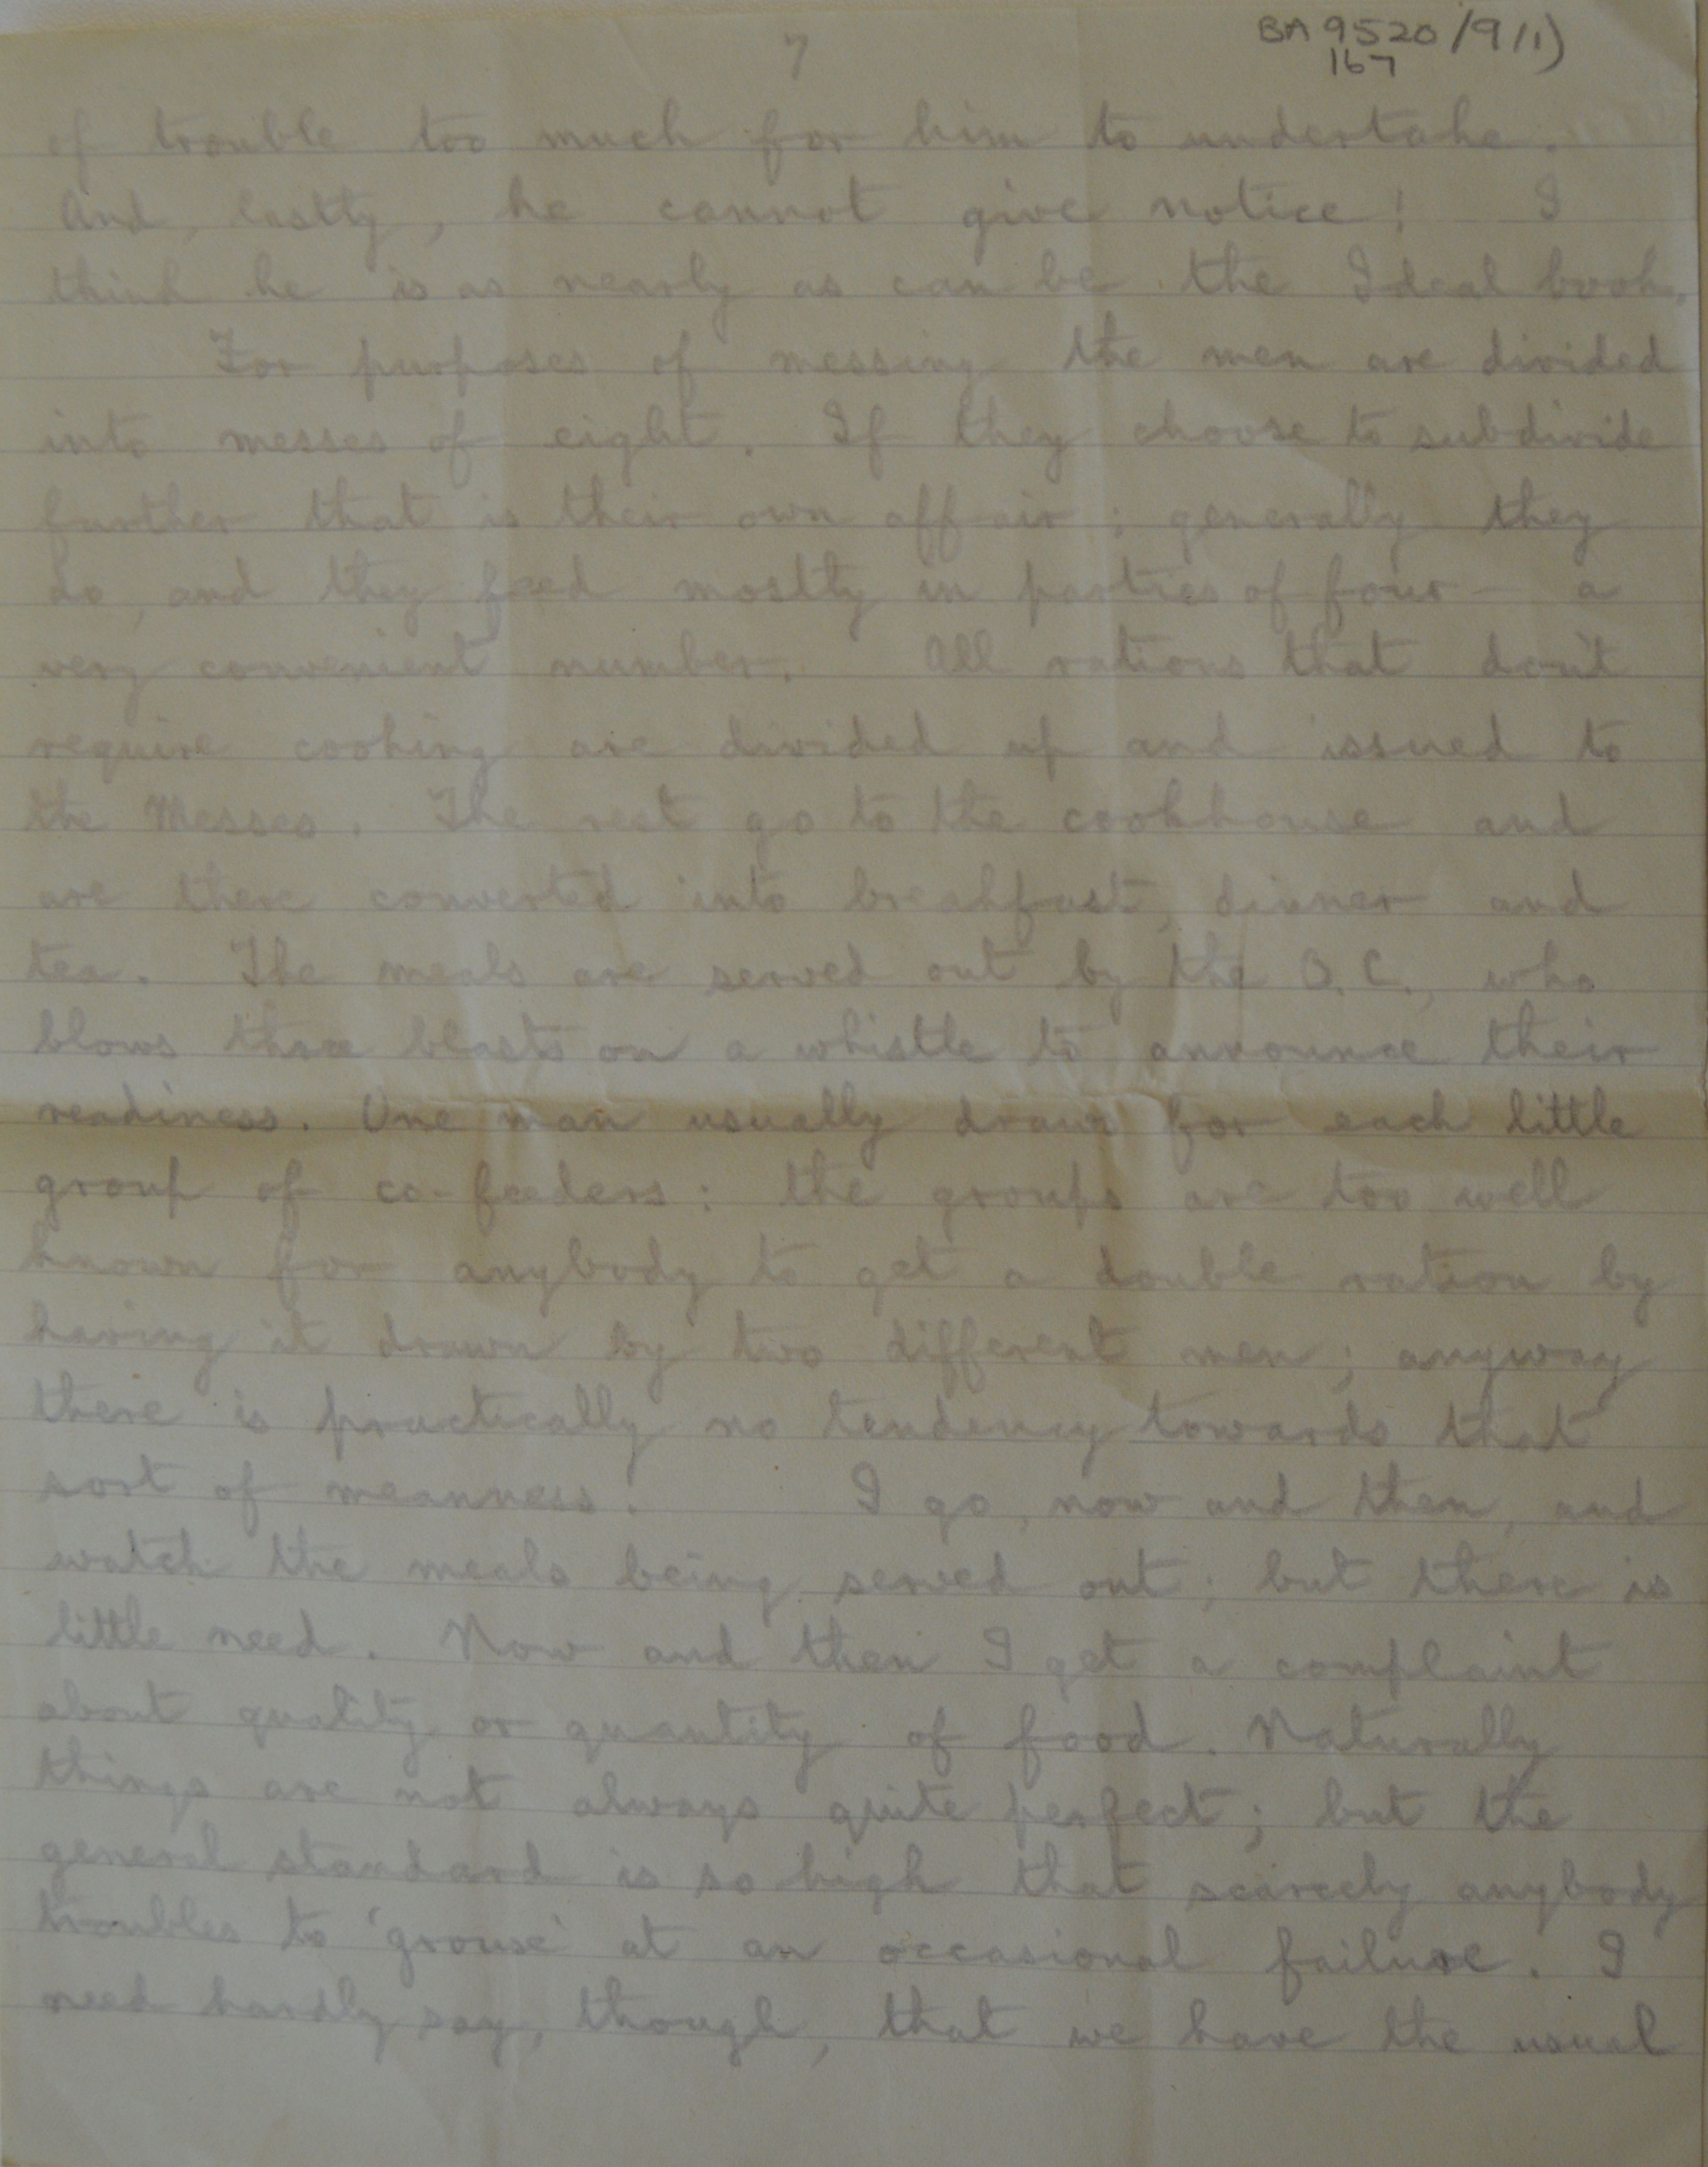 7
BA 9520/9(1)
167
of trouble too much for him to undertake.
And, lastly, he cannot give notice! I
think he is as nearly as can be the Ideal Cook.
For purposes of messing the men are divided
into messes of eight. If they choose to subdivide
further that is their own affair; generally they
do, and they feed mostly in parties of four - a
very convenient number. All rations that don't
require cooking are divided up and issued to
the Messes. The rest go to the cookhouse and
are there converted into breakfast, dinner and
tea. The meals are served out by the O.C., who
blows three blasts on a whistle to announce their
readiness. One man usually draws for each little
group of co-feeders: the groups are too well
known for anybody to get a double ration by
having it drawn by two different men; anyway
there is practically no tendency towards that
sort of meanness. I go, now and then, and
watch the meals being served out; but there is
little need. Now and then I get a complaint
about quality or quantity of food. Naturally
things are not always quite perfect; but the
general standard is so high that scarcely anybody
troubles to 'grouse' at an occasional failure. I
need hardly say, though, that we have the usual